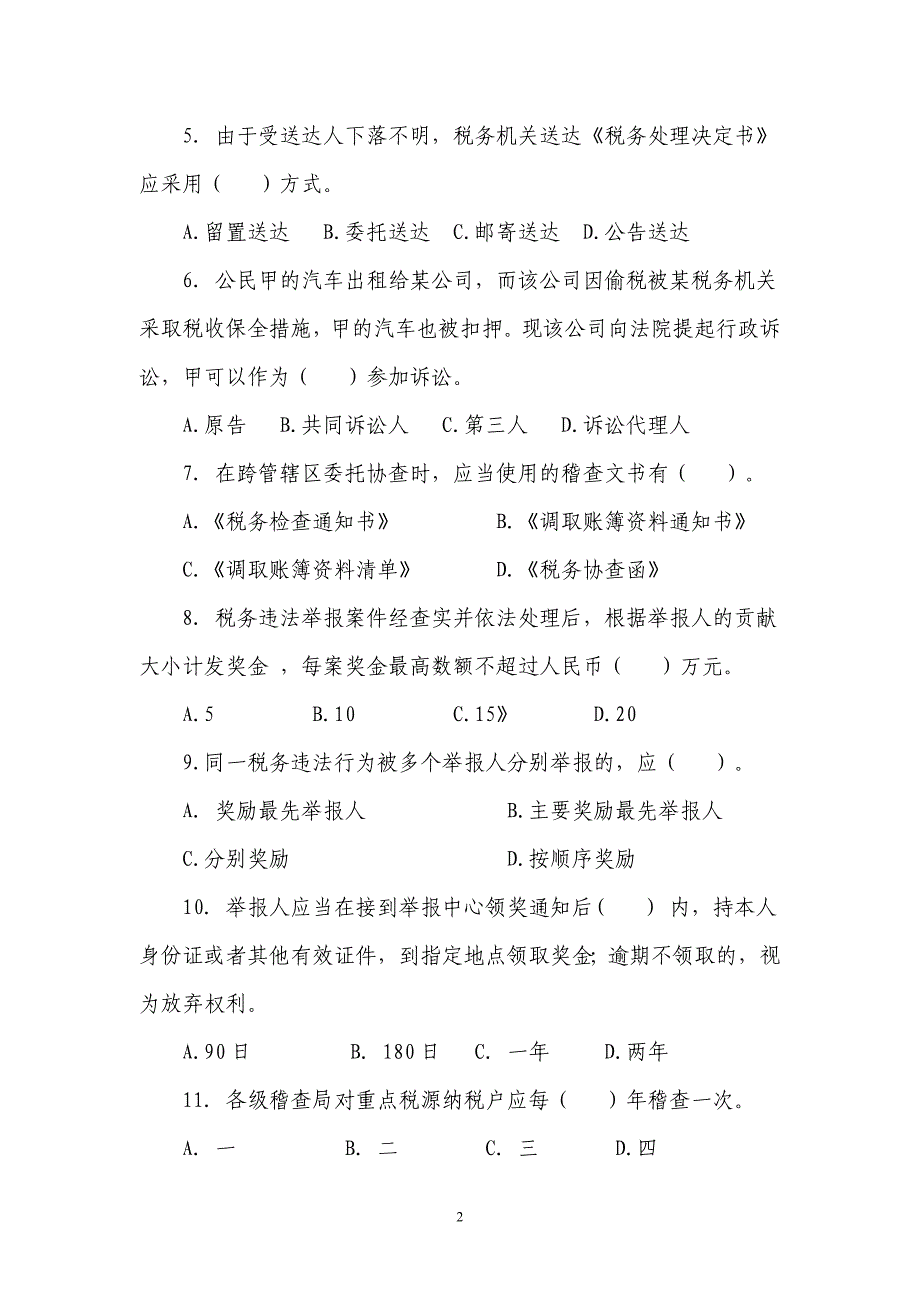 5. 由于受送达人下落不明，税务机关送达《税务处理决定书》
应采用（    ）方式。
A.留置送达   B.委托送达  C.邮寄送达  D.公告送达
6. 公民甲的汽车出租给某公司，而该公司因偷税被某税务机关
采取税收保全措施，甲的汽车也被扣押。现该公司向法院提起行政诉
讼，甲可以作为（    ）参加诉讼。
A.原告   B.共同诉讼人   C.第三人   D.诉讼代理人
7. 在跨管辖区委托协查时，应当使用的稽查文书有（    ）。
A.《税务检查通知书》          B.《调取账簿资料通知书》
C.《调取账簿资料清单》        D.《税务协查函》
8. 税务违法举报案件经查实并依法处理后，根据举报人的贡献
大小计发奖金 ，每案奖金最高数额不超过人民币（    ）万元。
A.5         B.10         C.15》        D.20
9.同一税务违法行为被多个举报人分别举报的，应（    ）。
A. 奖励最先举报人             B.主要奖励最先举报人
C.分别奖励                    D.按顺序奖励
10. 举报人应当在接到举报中心领奖通知后（    ）内，持本人
身份证或者其他有效证件，到指定地点领取奖金；逾期不领取的，视
为放弃权利。
A.90日         B. 180日   C. 一年     D.两年
11. 各级稽查局对重点税源纳税户应每（    ）年稽查一次。
A. 一          B. 二        C. 三       D.四
2